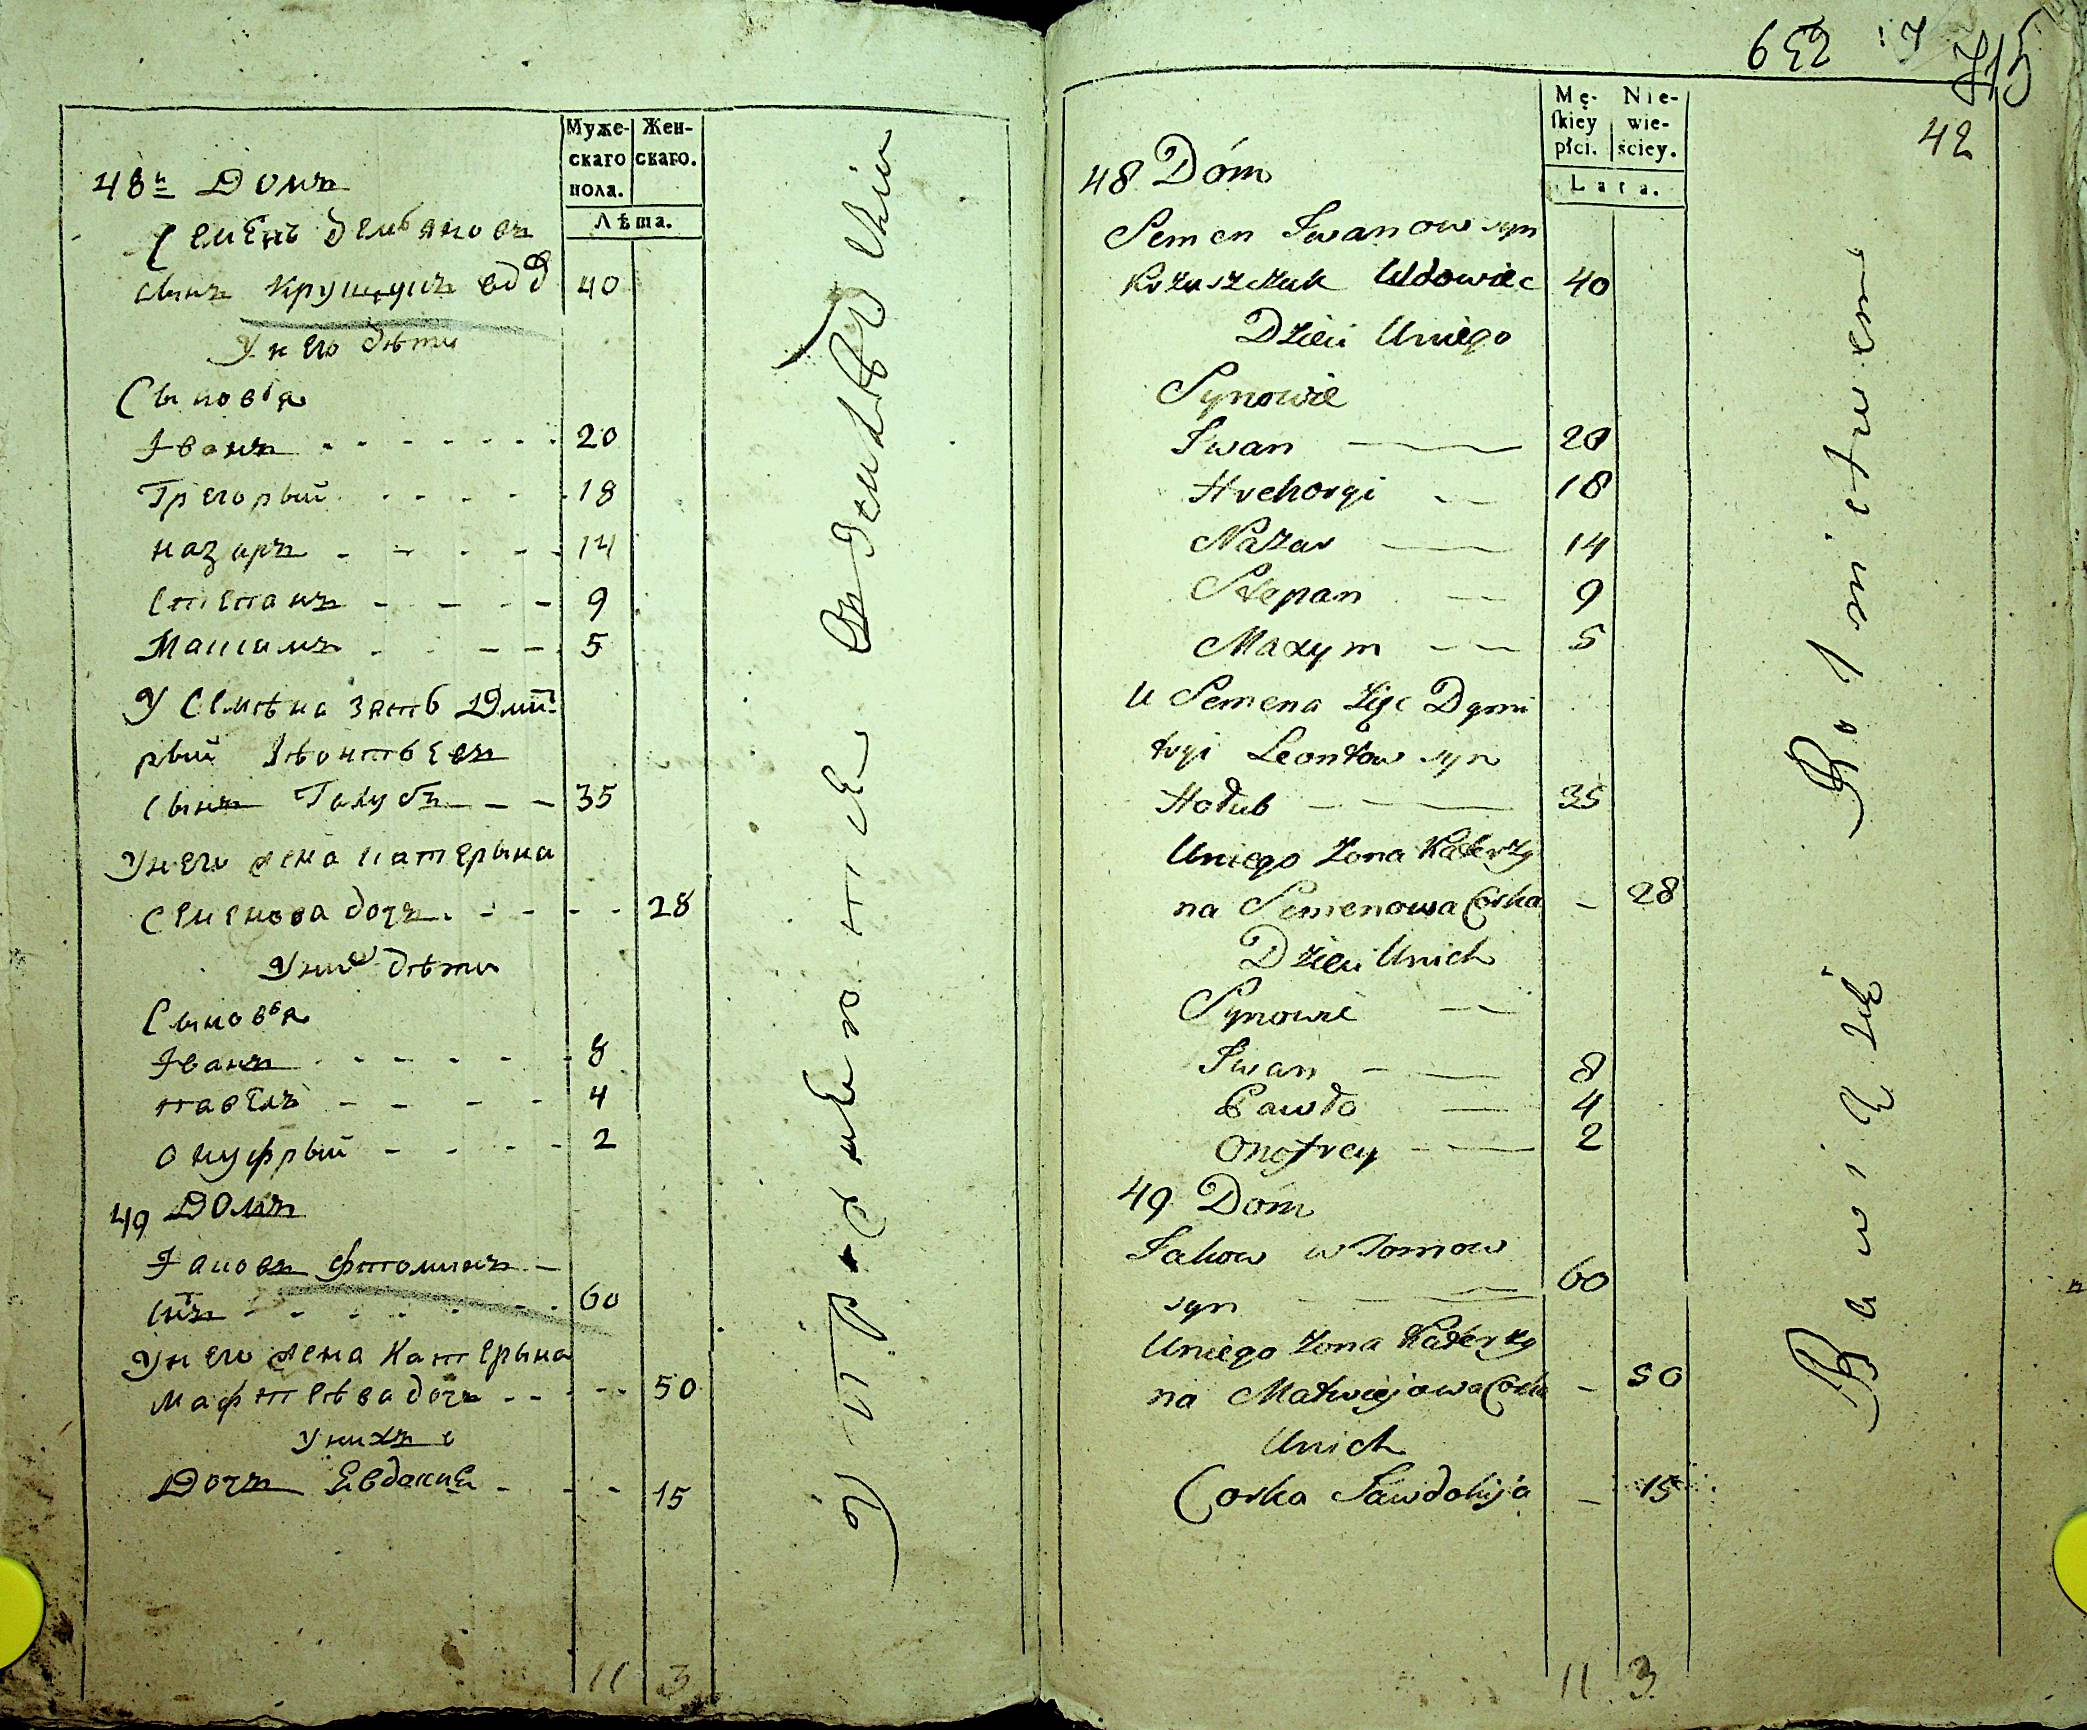 Муже-
скаго
пола.
Жен-
скаго.
Лѣта.
48й Домъ
Семенъ демьяновъ
сынъ крущукъ вд
У него дѣти
Сыновья
Іванъ 20
Грегорый 18
назаръ 14
Степанъ 9
Максимъ 5
У Семѣна зять Дмит
рый Лѣонтьевъ
сынъ Голубъ 35
У него жена катерына
Семенова дочъ 28
У них дѣти
Сыновья
Іванъ 8
павелъ 4
онуфрый 2
49 Домъ
Іаковъ фтоминъ
снъ 60
У него жена Катерына
Мафтѣева дочъ 50
У нихъ
Дочъ Евдокия 15
11 3
639
715
42
Mę-
ſkiey
płci.
Nie-
wie-
ściey.
Lata.
48 Dóm
Semen Iwanow syn
Krzuszczuk Wdowiec 40
Dzieci Uniego
Synowie
Iwan 20
Hrehorgi 18
Nazar 14
Stepan 9
Maxym 5
U Semena Zięć Dymi
trgi Leontow syn
Hołub 35
Uniego Zona Katerzy
na Semenowa Corka 28
Dzieci Unich
Synowie
Iwan 8
Pawło 4
Onofrey 2
49 Dom
Jakow wTomow
syn 60
Uniego Zona Katerzy
na Matwiejowa Corka 50
Unich
Corka Jawdokija 15
11 3